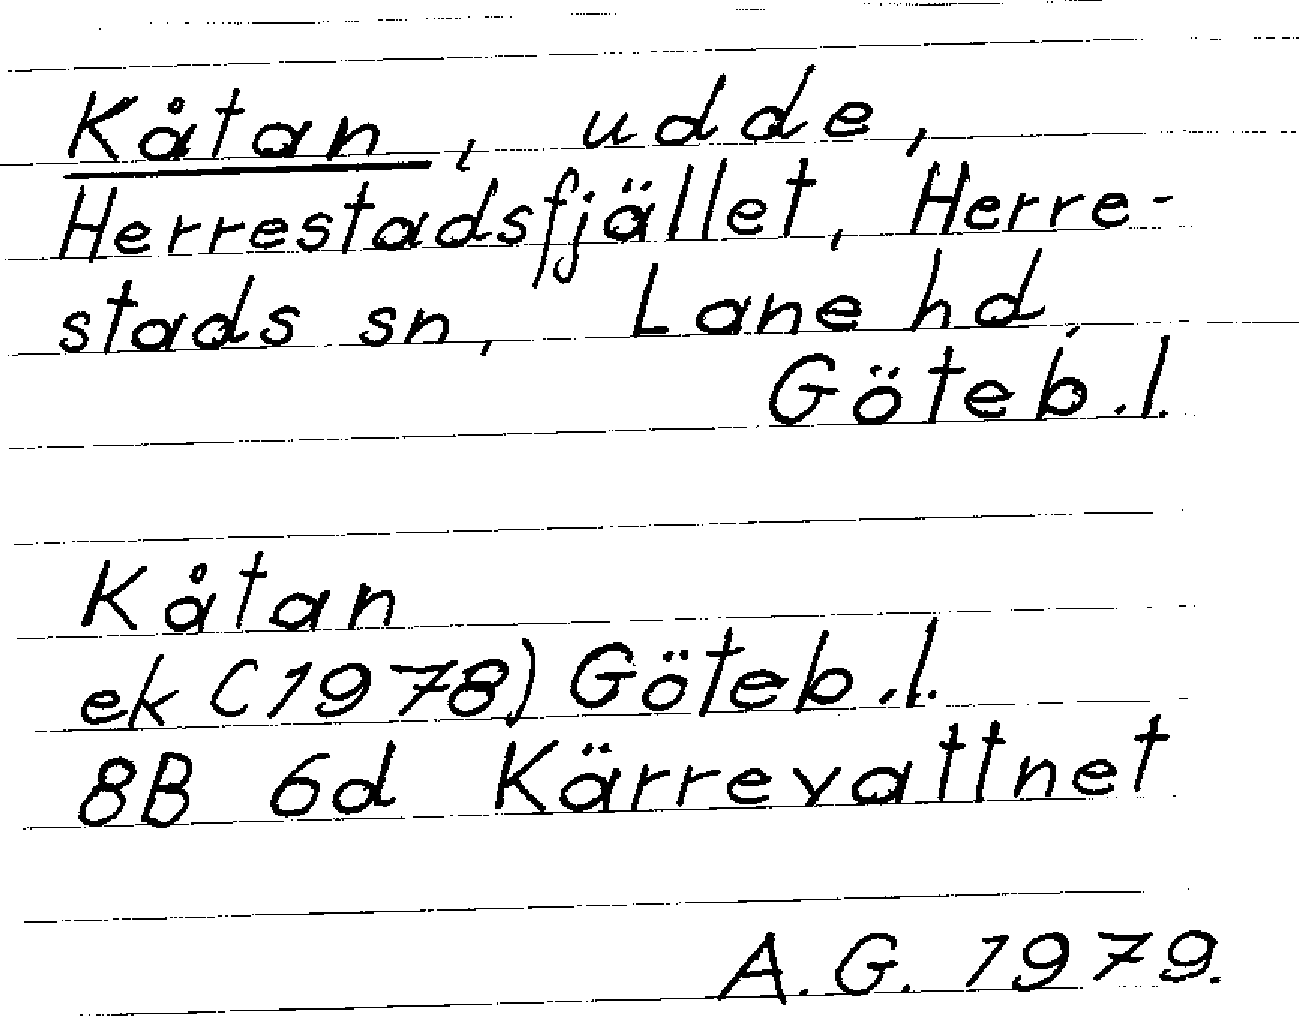 Kåtan, udde,
Herrestadsfjället, Herre-
stads sn, Lane hd,
Göteb.l.
Kåtan
ek (1978) Göteb.l.
8B 6d Kärrevattnet
A.G. 1979.